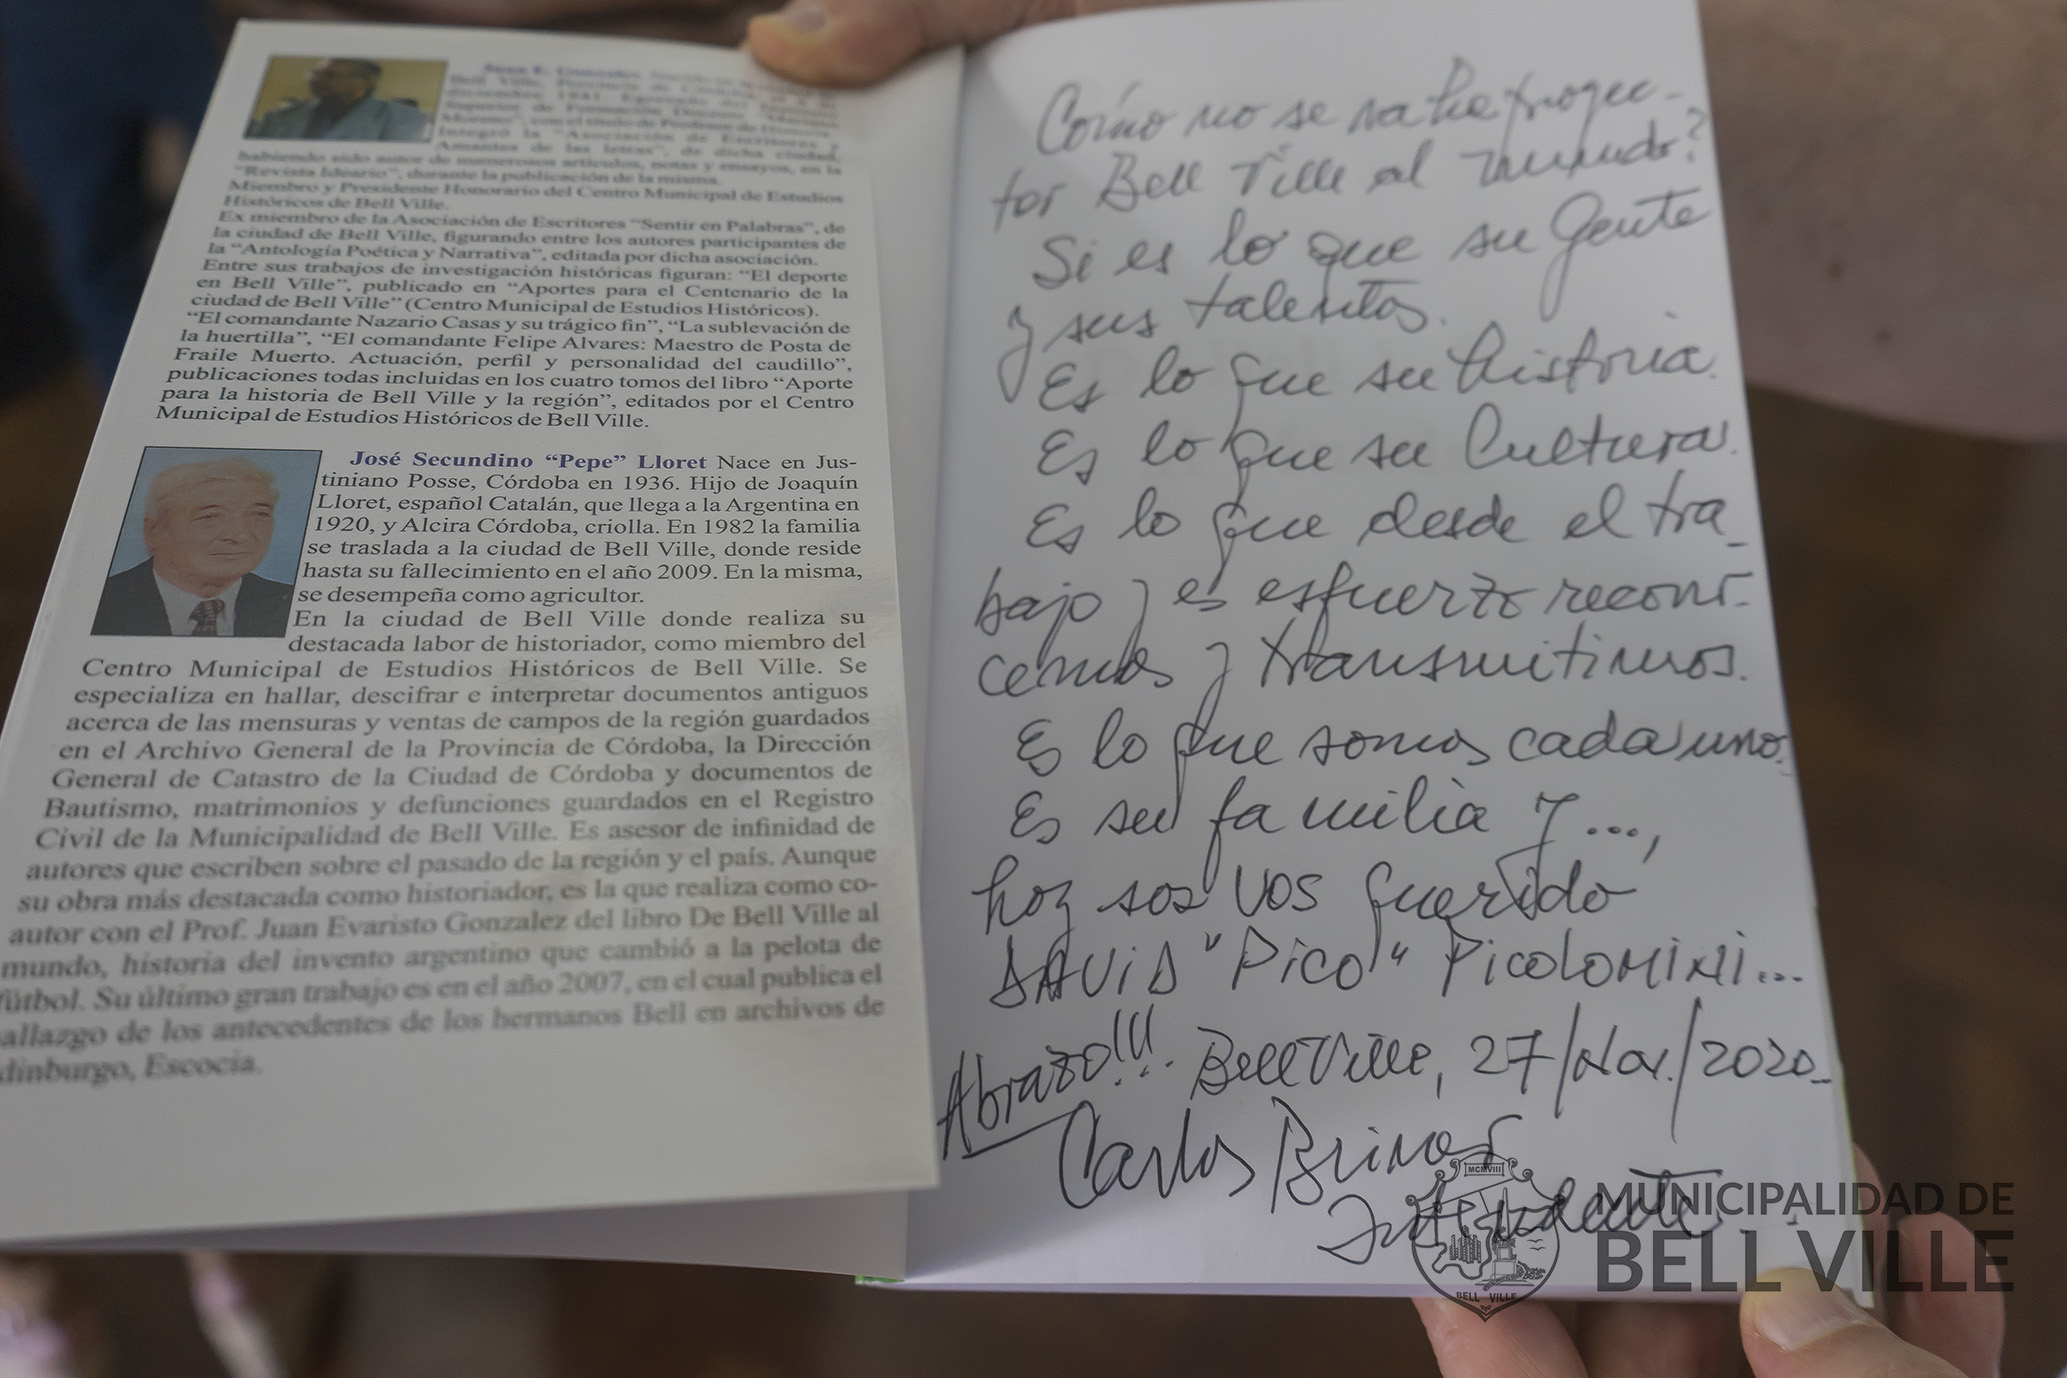 Juan E. Gonzalez
Bell Ville, Provincia de Córdoba, el
diciembre 1941. Egresado del
Superior de Formación Docente "Mariano
Moreno", con el título de Profesor de Historia.
Integró la "Asociación de Escritores y
Amantes de las letras", de dicha ciudad,
habiendo sido autor de numerosos artículos, notas y ensayos, en la
"Revista Ideario", durante la publicación de la misma.
Miembro y Presidente Honorario del Centro Municipal de Estudios
Históricos de Bell Ville.
Ex miembro de la Asociación de Escritores "Sentir en Palabras", de
la ciudad de Bell Ville, figurando entre los autores participantes de
la "Antología Poética y Narrativa", editada por dicha asociación.
Entre sus trabajos de investigación históricas figuran: "El deporte
en Bell Ville", publicado en "Aportes para el Centenario de la
ciudad de Bell Ville" (Centro Municipal de Estudios Históricos).
"El comandante Nazario Casas y su trágico fin", "La sublevación de
la huertilla", "El comandante Felipe Alvares: Maestro de Posta de
Fraile Muerto. Actuación, perfil y personalidad del caudillo",
publicaciones todas incluidas en los cuatro tomos del libro "Aporte
para la historia de Bell Ville y la región", editados por el Centro
Municipal de Estudios Históricos de Bell Ville.
José Secundino "Pepe" Lloret Nace en Jus-
tiniano Posse, Córdoba en 1936. Hijo de Joaquín
Lloret, español Catalán, que llega a la Argentina en
1920, y Alcira Córdoba, criolla. En 1982 la familia
se traslada a la ciudad de Bell Ville, donde reside
hasta su fallecimiento en el año 2009. En la misma,
se desempeña como agricultor.
En la ciudad de Bell Ville donde realiza su
destacada labor de historiador, como miembro del
Centro Municipal de Estudios Históricos de Bell Ville. Se
especializa en hallar, descifrar e interpretar documentos antiguos
acerca de las mensuras y ventas de campos de la región guardados
en el Archivo General de la Provincia de Córdoba, la Dirección
General de Catastro de la Ciudad de Córdoba y documentos de
Bautismo, matrimonios y defunciones guardados en el Registro
Civil de la Municipalidad de Bell Ville. Es asesor de infinidad de
autores que escriben sobre el pasado de la región y el país. Aunque
su obra más destacada como historiador, es la que realiza como co-
autor con el Prof. Juan Evaristo Gonzalez del libro De Bell Ville al
mundo, historia del invento argentino que cambió a la pelota de
fútbol. Su último gran trabajo es en el año 2007, en el cual publica el
allazgo de los antecedentes de los hermanos Bell en archivos de
dinburgo, Escocia.
Cómo no se va
tor Bell Ville al mundo?
Si es lo que su gente
y sus talentos.
Es lo que su historia.
Es lo que su Cultura.
Es lo que desde el tra_
bajo y es esfuerzo reconο-
cemos y transmitimos.
Es lo que somos cada uno.
Es su familia y ...,
hoy sos vos querido
DAVID "PICO" PICOLOMINI...
Abrazo!!! Bell Ville, 27/Nov./2020_
Carlos Briner
Intendente
MCMVIII
BELL VILLE
MUNICIPALIDAD DE
BELL VILLE